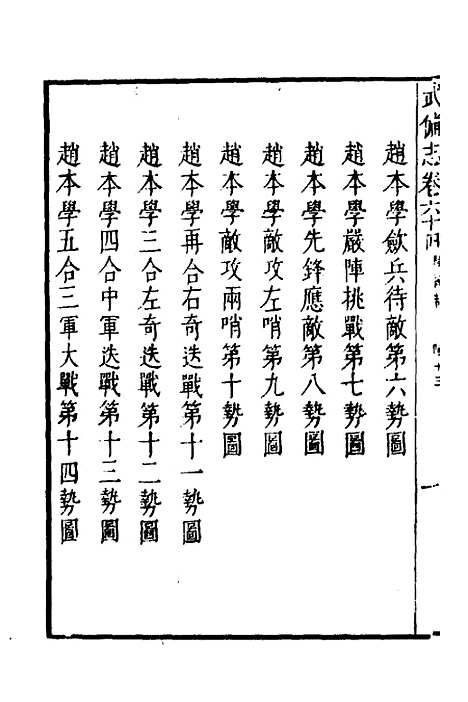 武備志卷六十
趙本學歛兵待敵第六勢圖
趙本學嚴陣挑戰第七勢圖
趙本學先鋒應敵第八勢圖
趙本學敵攻左哨第九勢圖
趙本學敵攻兩哨第十勢圖
趙本學再合右奇迭戰第十一勢圖
趙本學三合左奇迭戰第十二勢圖
趙本學四合中軍迭戰第十三勢圖
趙本學五合三軍大戰第十四勢圖